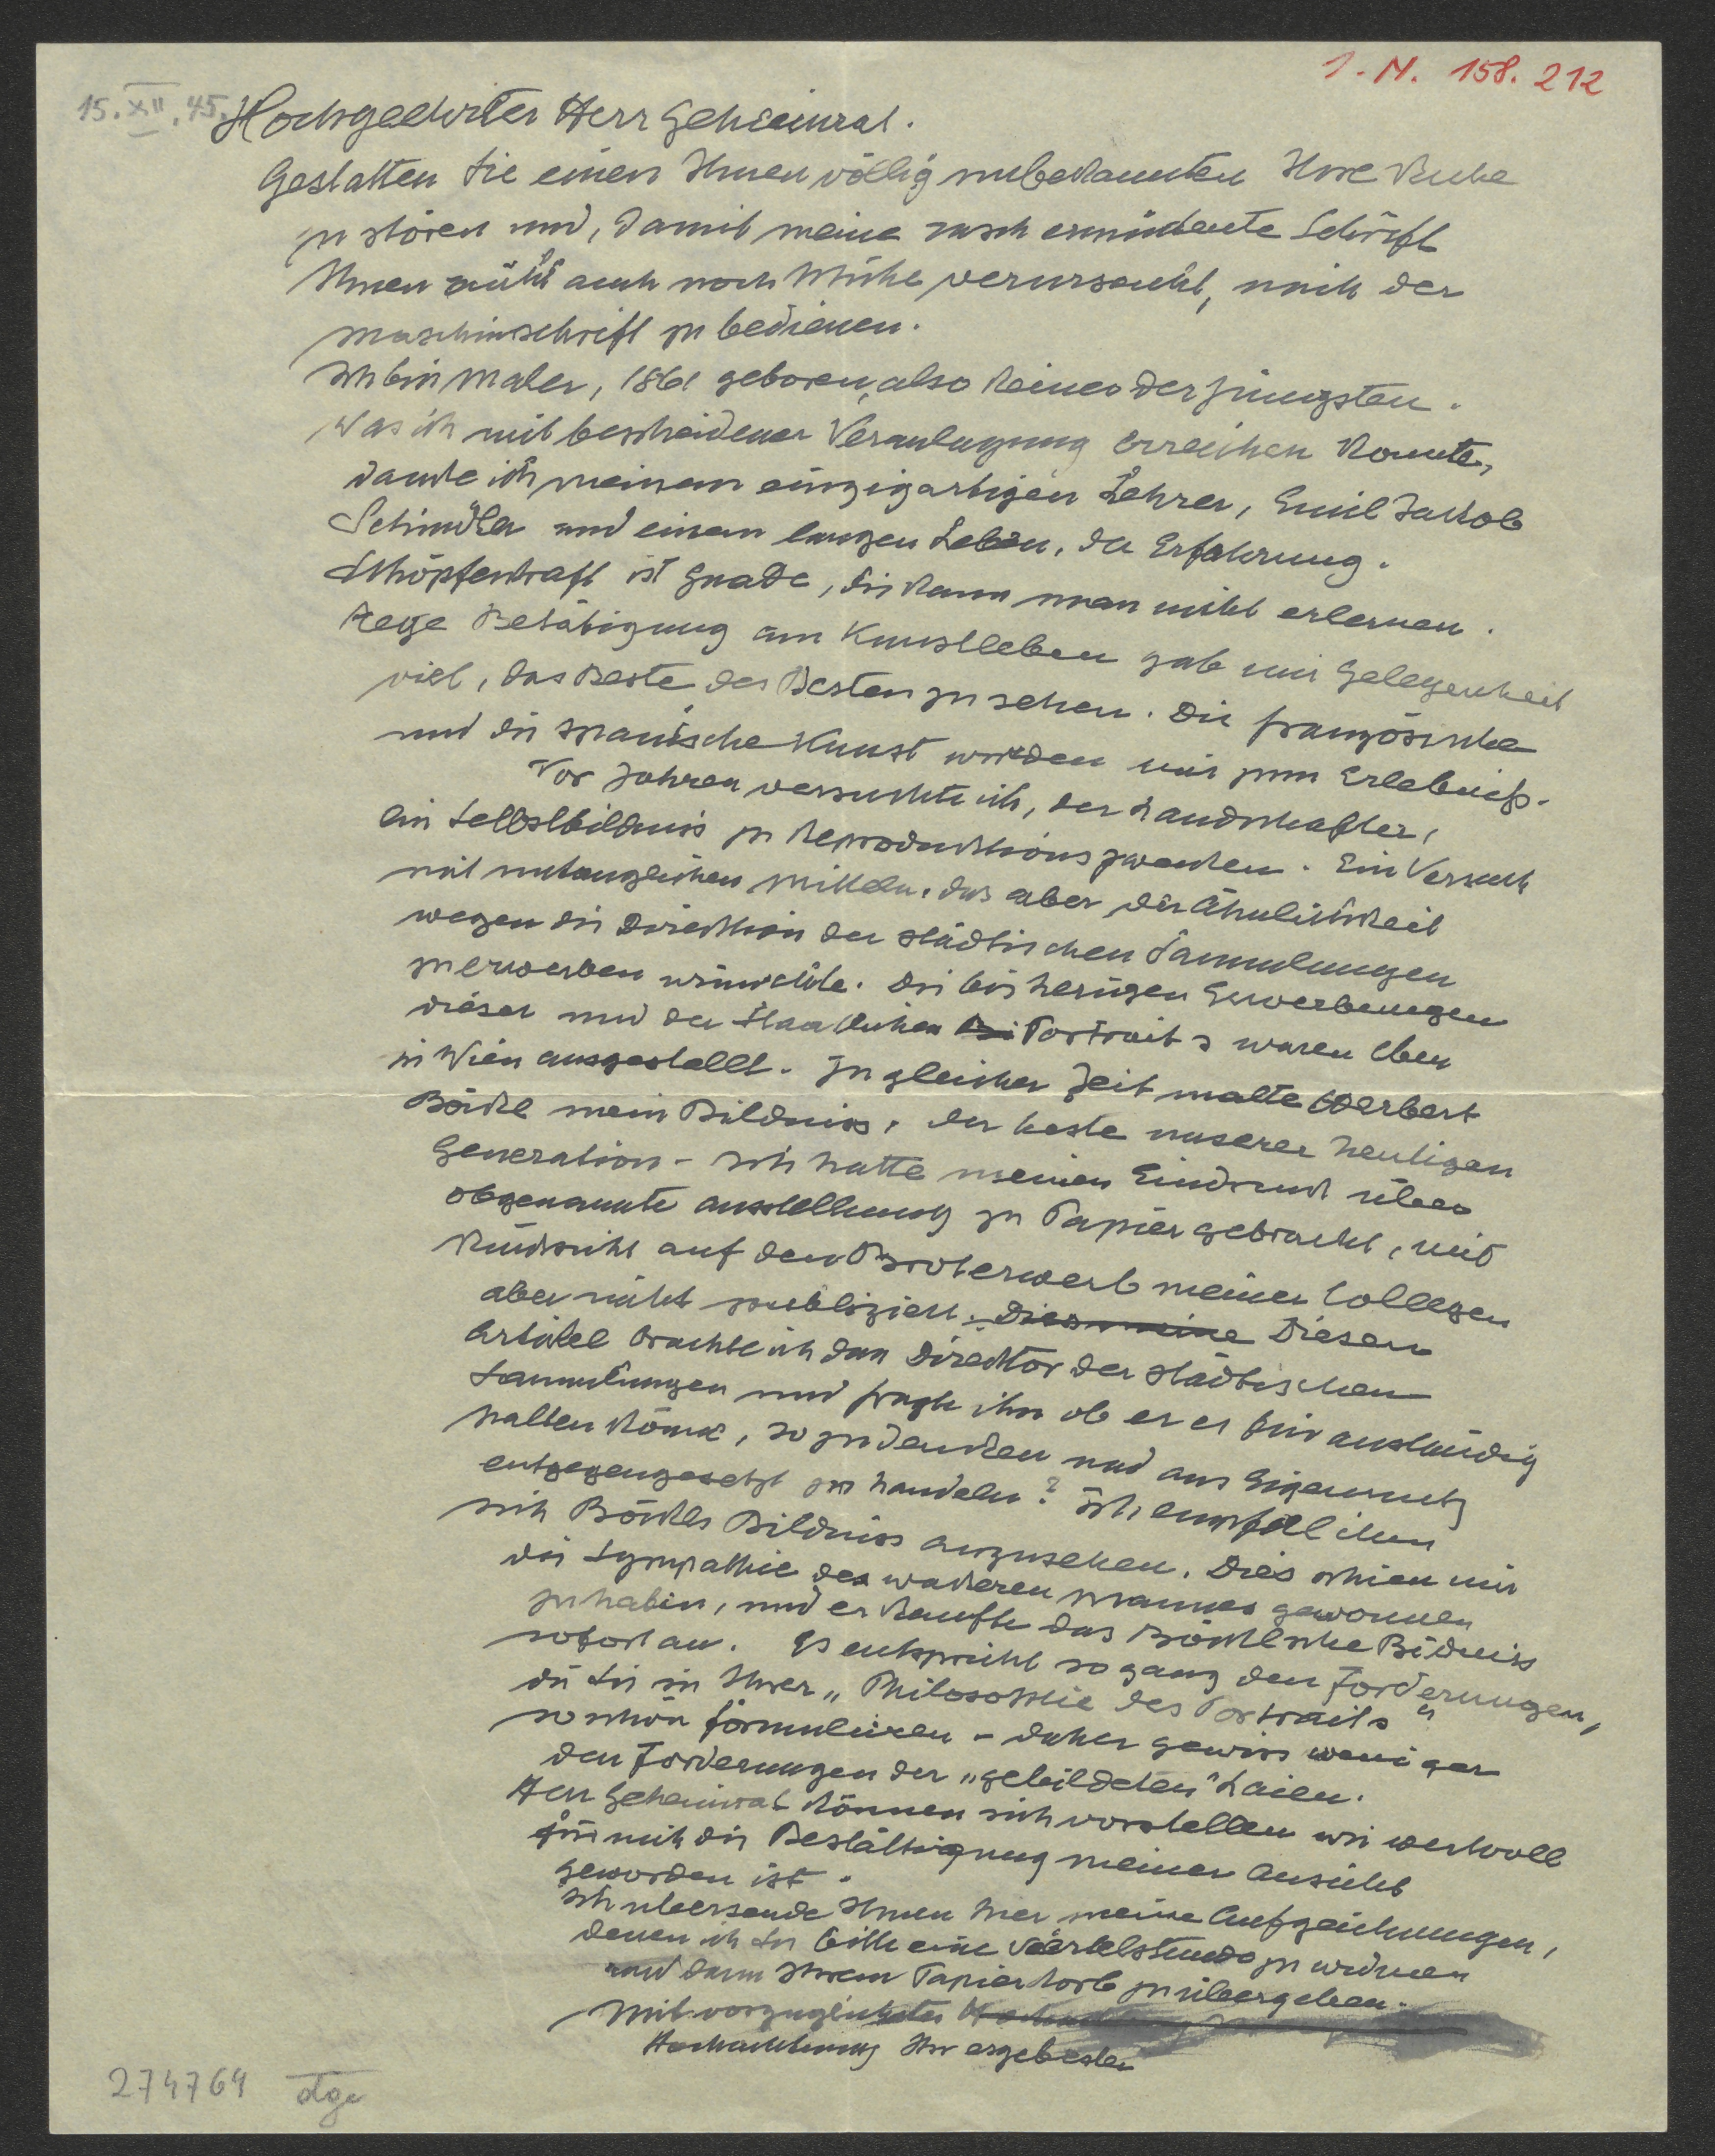 I. N. 158.212
15.XII.45.
Hochgeehrter Herr Geheimrat.
Gestatten Sie einen Ihnen völlig unbekannten Ihre Ruhe
zu stören und, damit meine rasch ermüdente Schrift
Ihnen nicht auch noch Mühe verursacht, mich der
Maschinschrift zu bedienen.
Ich bin Maler, 1861 geboren, also keiner der Jüngsten.
Was ich mit bescheidener Veranlagung erreichen konnte,
danke ich meinem einzigartigen Lehrer, Emil Jakob
Schindler und einem langen Leben, der Erfahrung.
Schöpferkraft ist Gnade, die kann man nicht erlernen.
Rege Betätigung am Kunstleben gab mir Gelegenheit
viel, das Beste des Besten zu sehen. Die französische
und die spanische Kunst wurden mir zum Erlebniss.
Vor Jahren versuchte ich, der Landschafter,
ein Selbstbildniss zu Reproduktionszwecken. Ein Versuch
mit untauglichen Mitteln, das aber der Ähnlichkeit
wegen die Direktion der städtischen Sammlungen
zu erwerben wünschte. Die bisherigen Erwerbungen
dieser und der Staatlichen Portraits waren eben
in Wien ausgestellt. Zu gleicher Zeit malte Herbert
Böckl mein Bildniss, der beste unserer heutigen
Generation - Ich hatte meinen Eindruck über
obgenannte Ausstellung zu Papier gebracht, mit
Rücksicht auf den Broterwerb meiner Collegen
aber nicht publiziert. Dies meine Diesen
Artikel brachte ich dem Direktor der städtischen
Sammlungen und fragte ihn ob er es für anständig
halten könne, so zu denken und aus Eigennutz
entgegengesetzt zu handeln? Ich empfal ihm
sich Böckls Bildniss anzusehen. Dies schien mir
die Sympathie des wackeren Mannes gewonnen
zu haben, und er kaufte das Böcklsche Bildniss
sofort an. Es entspricht so ganz den Forderungen,
die Sie in Ihrer „Philosophie des Portraits"
so schön formulieren - daher gewiss weniger
den Forderungen der „gebildeten" Laien.
Herr Geheimrat können sich vorstellen wie wertvoll
für mich die Bestättigung meiner Ansicht
geworden ist.
Ich übersende Ihnen hier meine Aufzeichnungen,
denen ich Sie bitte eine Viertelstunde zu widmen
und dann Ihrem Papierkorb zu übergeben.
Mit vorzüglichster
Hochachtung Ihr ergebenster
274764 dge